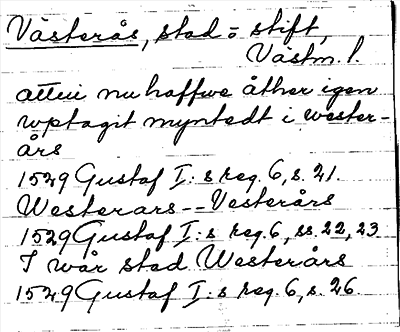 Västerås, stad o stift,
Västm. l.
atTwi nu haffwe åther igen
wptagit myntedt i wester-
års
1529 Gustaf I:s reg. 6, s. 21.
Westerars -- Vesterårs
1529 Gustaf I:s reg. 6, ss. 22, 23
I wår stad Westerårs
1529 Gustaf I:s reg. 6, s. 26